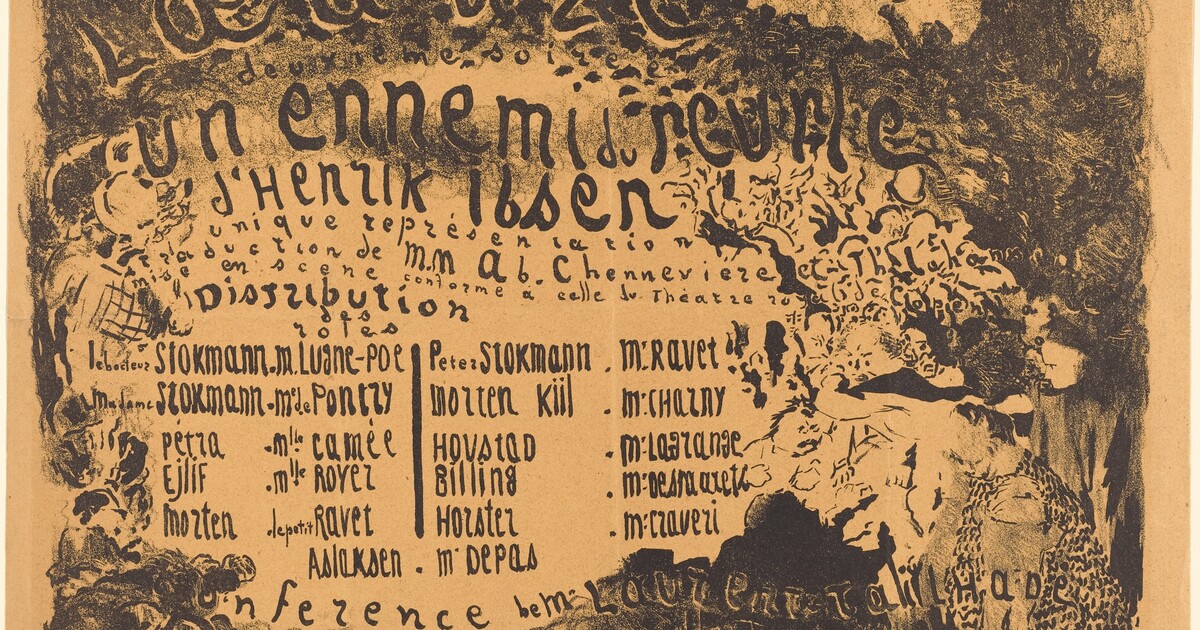 L'Œuvre
deuxième soirée
un ennemi du peuple
d'Henrik Ibsen
unique représentation
traduction de M.M Ab. Chenneviere et
mise en scène conforme à celle du Théatre royal de
Distribution
des
rôles
le docteur Stokmann. m. Lugné-Poe
Madame Stokmann. Me de Pontry
pétra . mlle camée
Ejlif . mlle Royer
Morten . le petit Ravet
Peter Stokmann . Mr Ravet
Morten Kiil . Mr Charny
Hovstad . Mr Lagrange
Billing . Mr
Horster . Mr Craveri
Aslaksen . Mr Depas
nference de Mr Laurent Tailhade